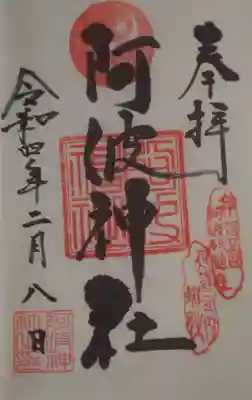 奉拝
阿波神社
令和四年二月八日